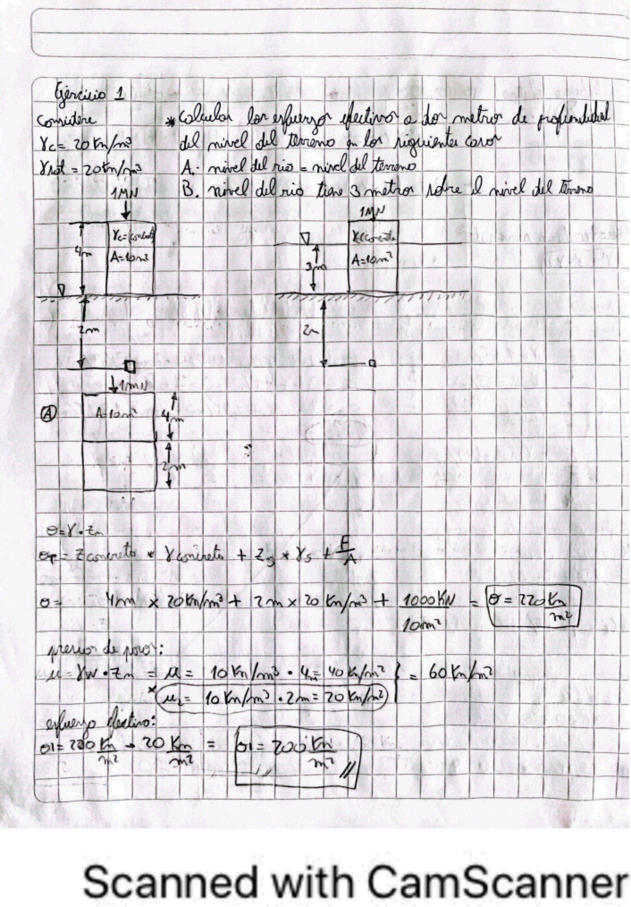 Ejercicio 1
Considere
γc = 20 Kn/m³
γsat = 20Kn/m³
* Calcular los esfuerzo efectivos a dos metros de profundidad
del nivel del terreno en los siguientes casos
A.- nivel del rio = nivel del terreno
B. nivel del rio tiene 3 metros sobre el nivel del terreno
1MN
γc = concreto
A=10m³
4m
2m
1MN
γc concreto
A=10m²
3m
2m
A
1MN
A=10m²
4m
2m
σ=γ·Zn
σT = Zconcreto * γconcreto + Zs * γs + F/A
σ= 4m × 20 Kn/m³ + 2m × 20 Kn/m³ + 1000 KN/10m² = σ = 220 Kn/m²
presion de poros:
μ = γw · Zn = μ = 10 Kn/m³ · 4m = 40 Kn/m² } = 60 Kn/m²
* μ2 = 10 Kn/m³ · 2m = 20 Kn/m²
esfuerzo efectivo:
σ1 = 220 Kn/m² - 20 Kn/m² = σ1 = 200 Kn/m² //
Scanned with CamScanner